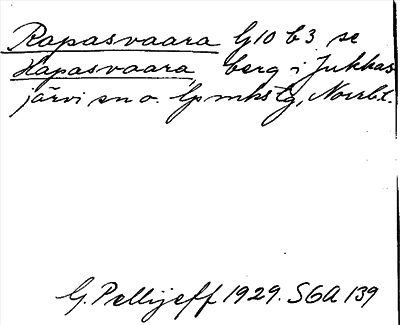 Rapasvaara G10 b3 se
Hapasvaara, berg i Jukkas
järvi sn o. lpmkstg, Norrb.l.
G. Pellijeff 1929. SGA 139